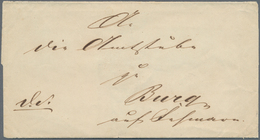 An
die Amtstube
zu
Burg
d.s.
auf Fehmarn.